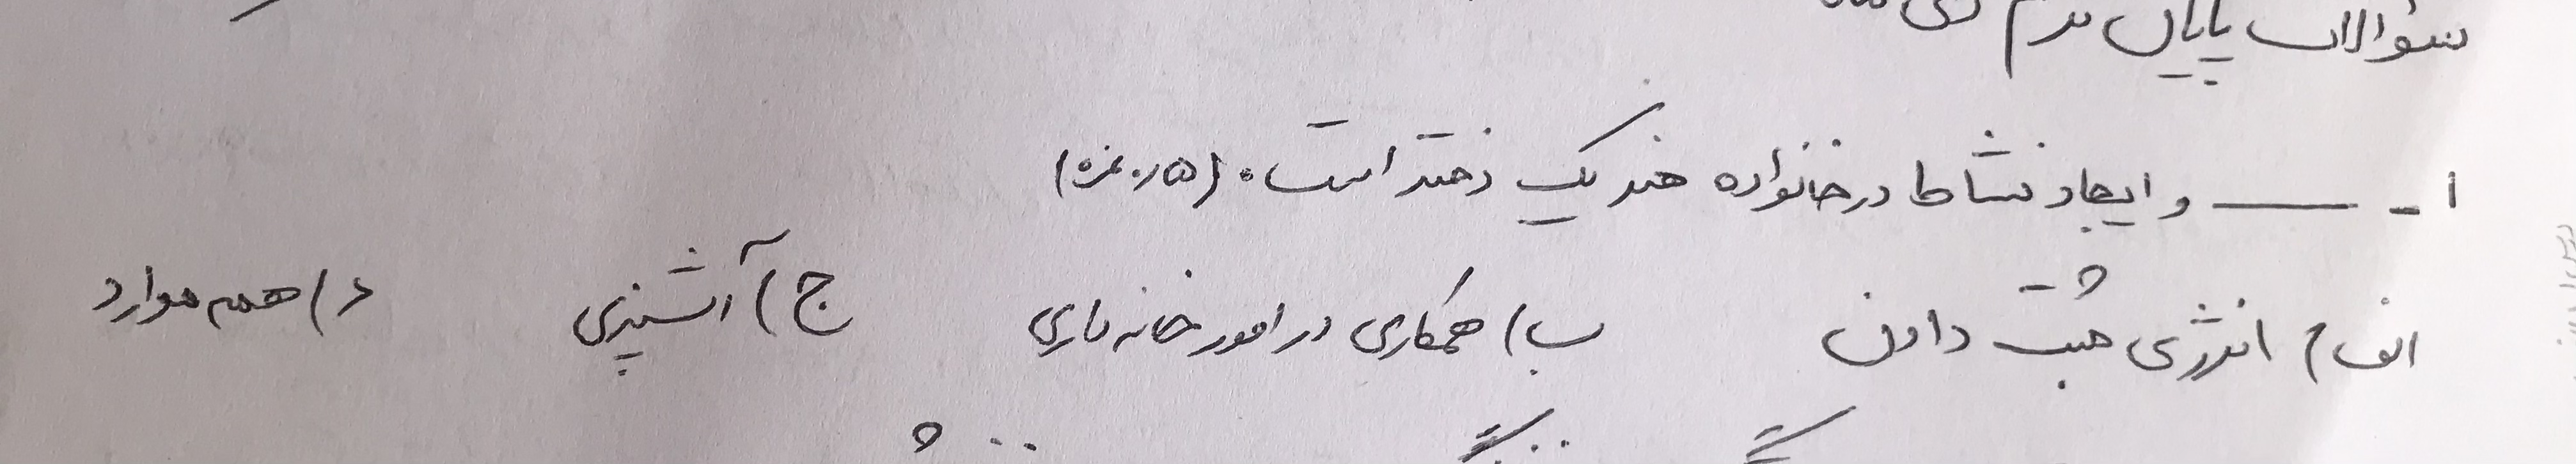 سؤالات پایان ترم
۱- ــــــ و ایجاد نشاط در خانواده هنر یک دختر است. (۰/۵ نمره)
الف) انرژی مثبت دادن ب) همکاری در امور خانه داری ج) آشپزی د) همه موارد